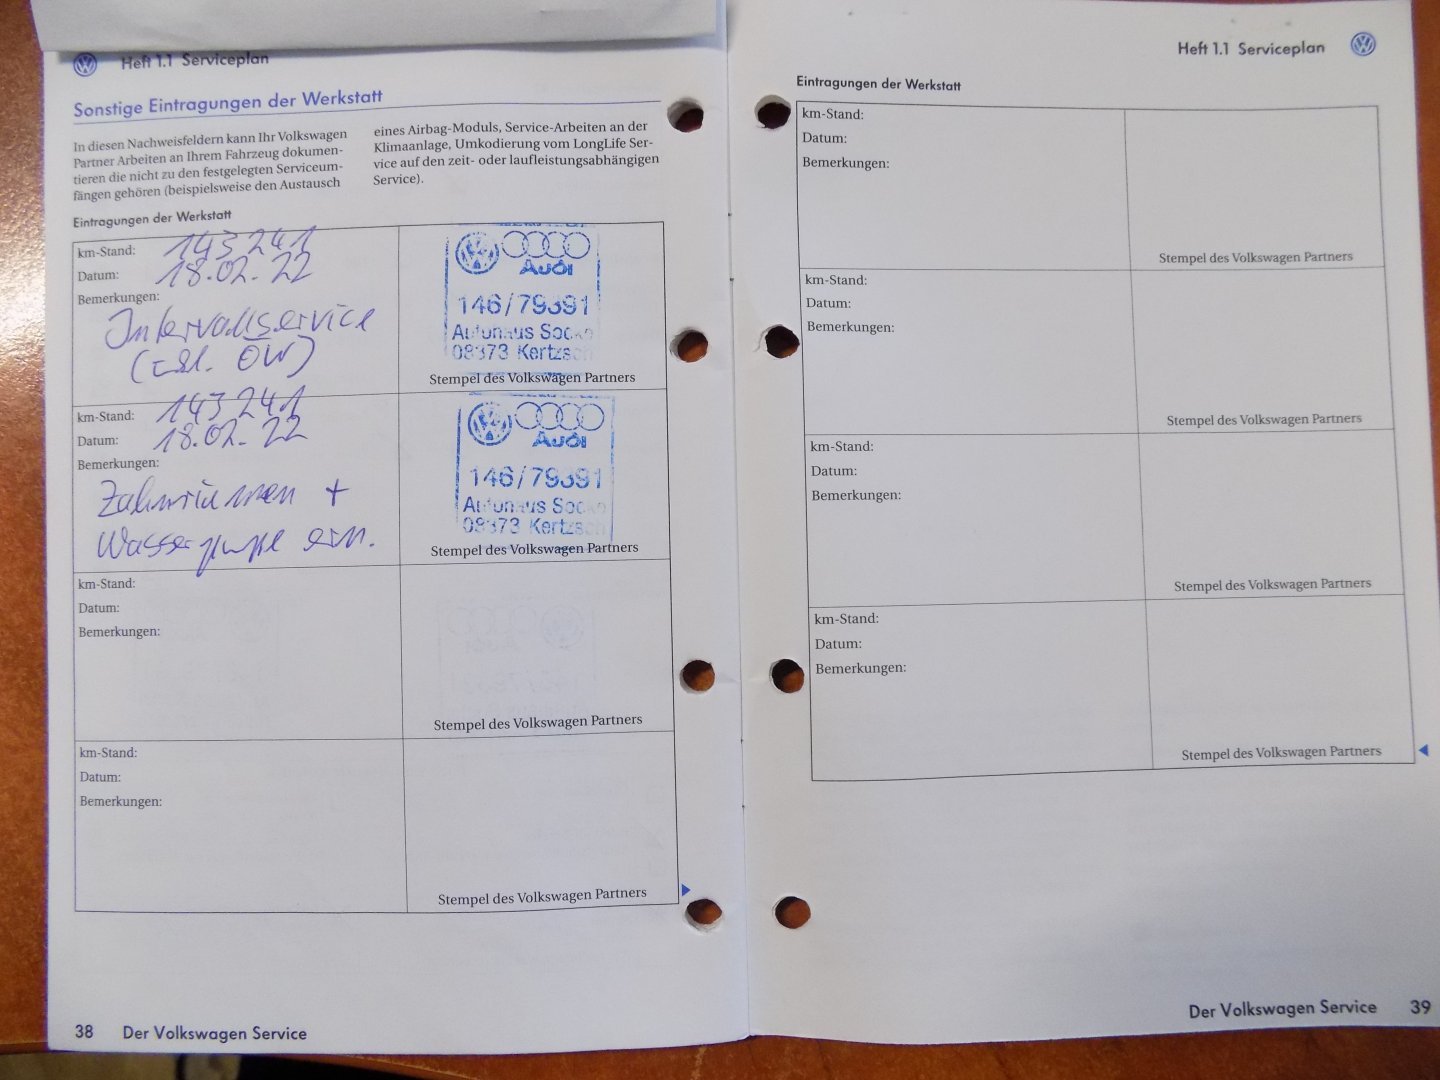 Heft 1.1 Serviceplan
Sonstige Eintragungen der Werkstatt
In diesen Nachweisfeldern kann Ihr Volkswagen
Partner Arbeiten an Ihrem Fahrzeug dokumen-
tieren die nicht zu den festgelegten Serviceum-
fängen gehören (beispielsweise den Austausch
eines Airbag-Moduls, Service-Arbeiten an der
Klimaanlage, Umkodierung vom LongLife Ser-
vice auf den zeit- oder laufleistungsabhängigen
Service).
Eintragungen der Werkstatt
km-Stand: 143 241
Datum: 18.02.22
Bemerkungen:
Intervallservice
ÖW)
Audi
146/79391
Autohaus
08373
Stempel des Volkswagen Partners
km-Stand: 143 241
Datum: 18.02.22
Bemerkungen:
Zahnriemen +
Wasserpumpe ern.
Audi
146/79391
Autohaus
08373
Stempel des Volkswagen Partners
km-Stand:
Datum:
Bemerkungen:
Stempel des Volkswagen Partners
km-Stand:
Datum:
Bemerkungen:
Stempel des Volkswagen Partners
38 Der Volkswagen Service
Heft 1.1 Serviceplan
Eintragungen der Werkstatt
km-Stand:
Datum:
Bemerkungen:
Stempel des Volkswagen Partners
km-Stand:
Datum:
Bemerkungen:
Stempel des Volkswagen Partners
km-Stand:
Datum:
Bemerkungen:
Stempel des Volkswagen Partners
km-Stand:
Datum:
Bemerkungen:
Stempel des Volkswagen Partners
Der Volkswagen Service 39